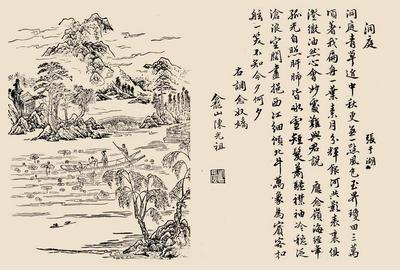 洞庭
張于湖
洞庭青草近中秋更無一點風色玉界瓊田三萬
頃著我扁舟一葉素月分輝銀河共影表裏俱
澄徹油然心會妙處難與君說 應念嶺海經年
孤光自照肝肺皆冰雪短髮蕭騷襟袖冷穩泛
滄浪空闊盡挹西江細傾北斗萬象為賓客扣
舷一笑不知今夕何夕
右調念奴嬌
山陳光祖